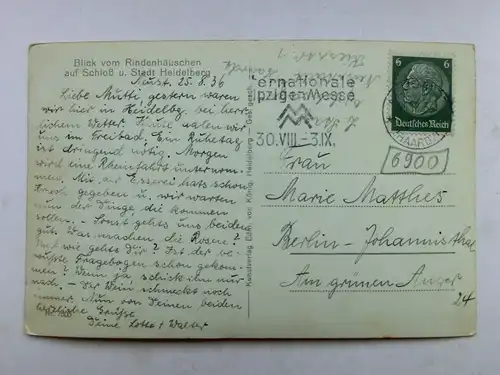 Blick vom Rindenhäuschen
auf Schloß u. Stadt Heidelberg
Neust. 25.8.36
Liebe Mutti, gestern waren
wir hier in Heidelbg bei herr-
lichem Wetter. Heute waren wir
im Freibad. Ein Ruhetag
ist dringend nötig. Morgen
wird eine Rheinfahrt unternom-
men. Mit der Esserei hats schon
gegeben u. wir warten
nun der Dinge die kommen
sollen. - Sonst gehts uns beiden
gut. Was machen die Rosen?
Und wie gehts Dir? Ist der be-
wußte Fragebogen schon gekom-
men? Wenn ja schick ihn nur
nach. Der Wein schmeckt noch
immer. Nun von Deinen beiden
herzliche Grüße
Deine Lotte + Walter
Kunstverlag Edm. von König, Heidelberg
Ges. gesch.
ernationale
ipziger Messe
30.VIII.-3.IX.
6
6
Deutsches Reich
(HAARDT)
6900
Frau
Marie Matthes
Berlin-Johannisthal
Am grünen Anger
24